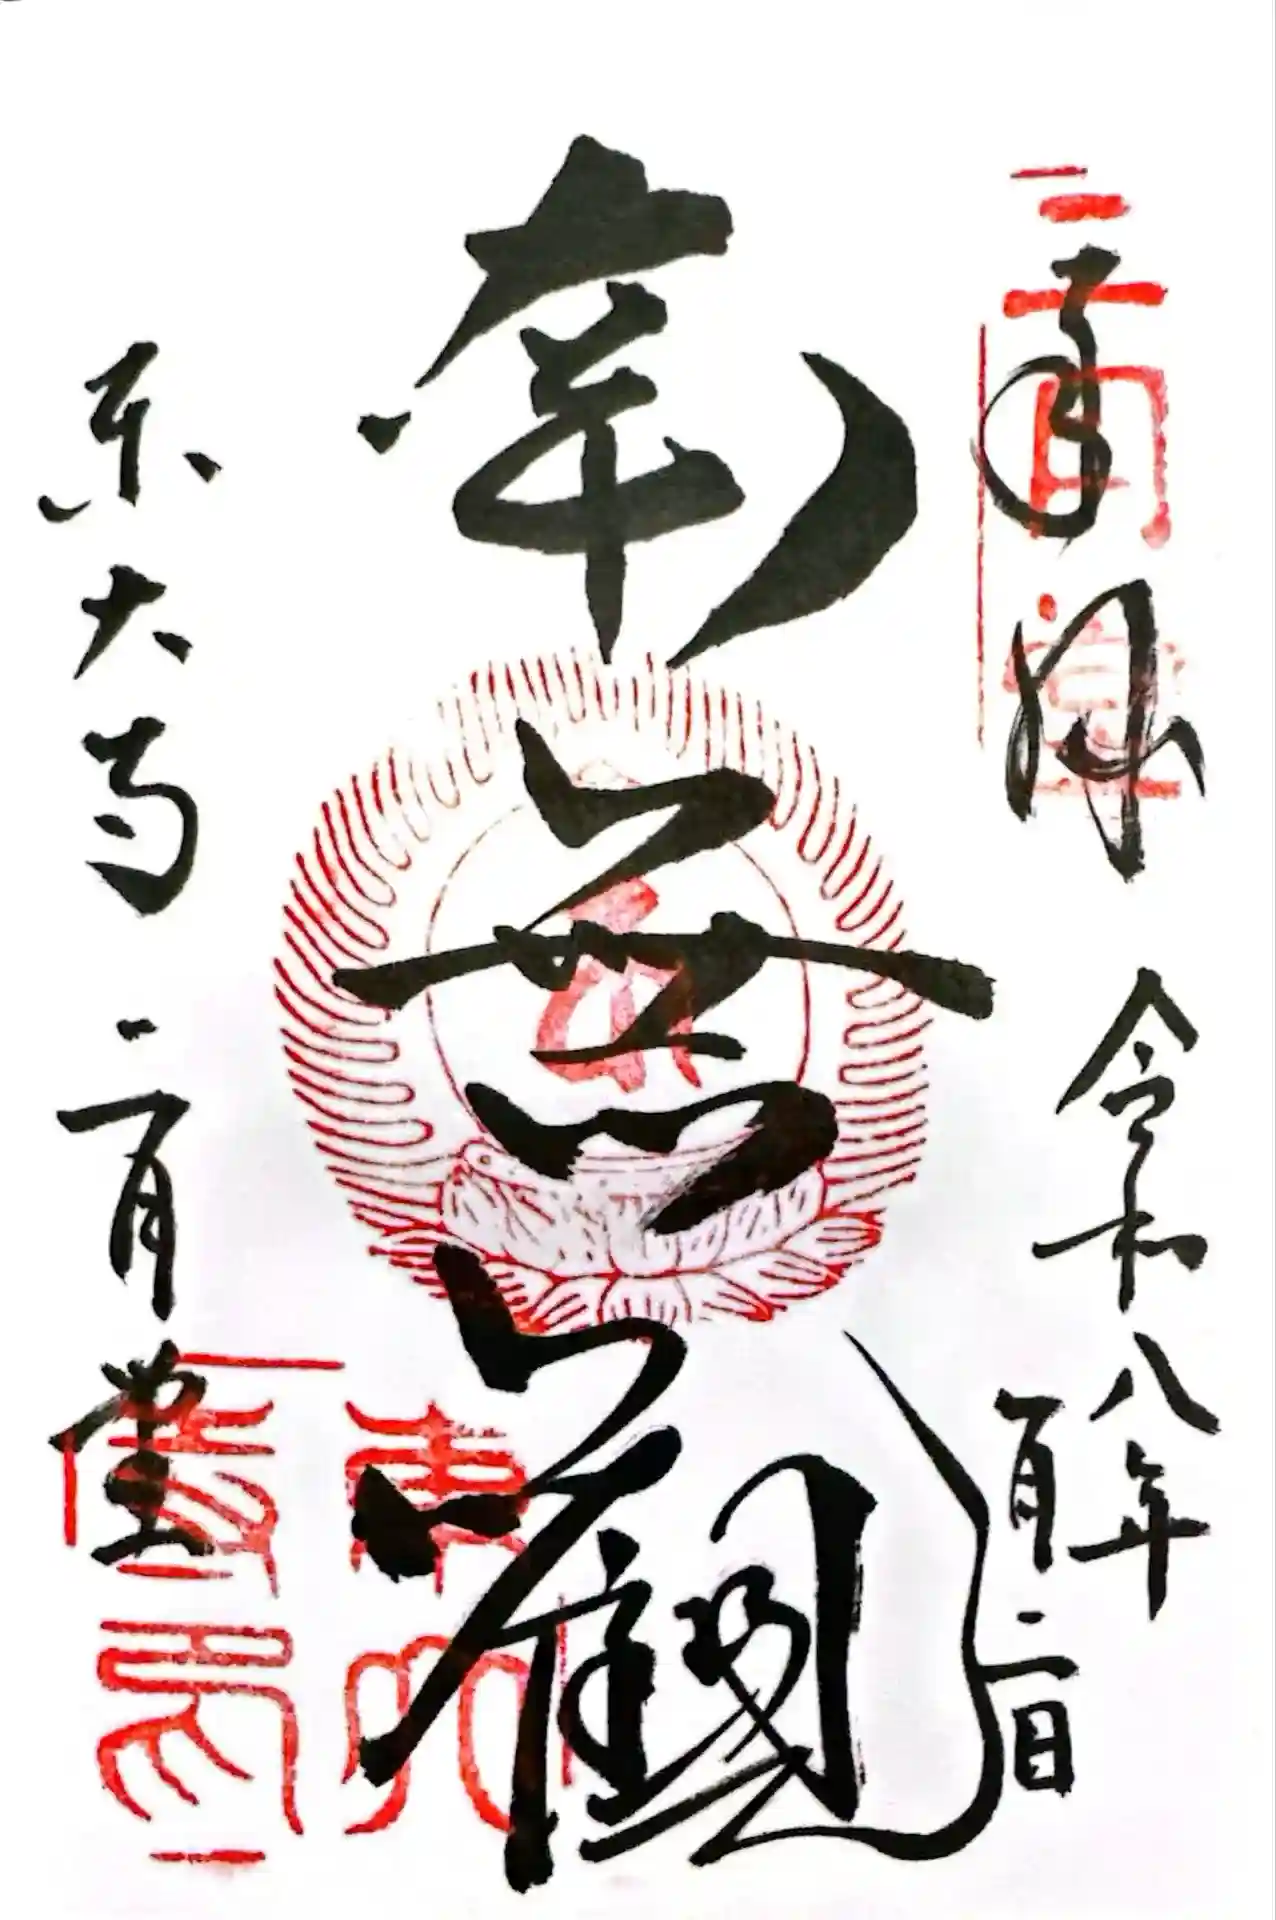 奉拝
令和八年
一月二日
二月堂
南無観
東大寺
二月堂